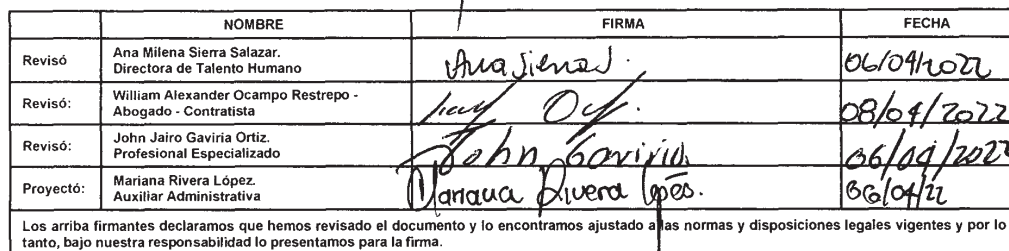 NOMBRE FIRMA FECHA
Revisó Ana Milena Sierra Salazar.
Directora de Talento Humano
Ana Sierra S. 06/04/2022
Revisó: William Alexander Ocampo Restrepo -
Abogado - Contratista
08/04/2022
Revisó: John Jairo Gaviria Ortiz.
Profesional Especializado
John Gaviria. 06/04/2022
Proyectó: Mariana Rivera López.
Auxiliar Administrativa
Mariana Rivera López. 06/04/22
Los arriba firmantes declaramos que hemos revisado el documento y lo encontramos ajustado a las normas y disposiciones legales vigentes y por lo
tanto, bajo nuestra responsabilidad lo presentamos para la firma.